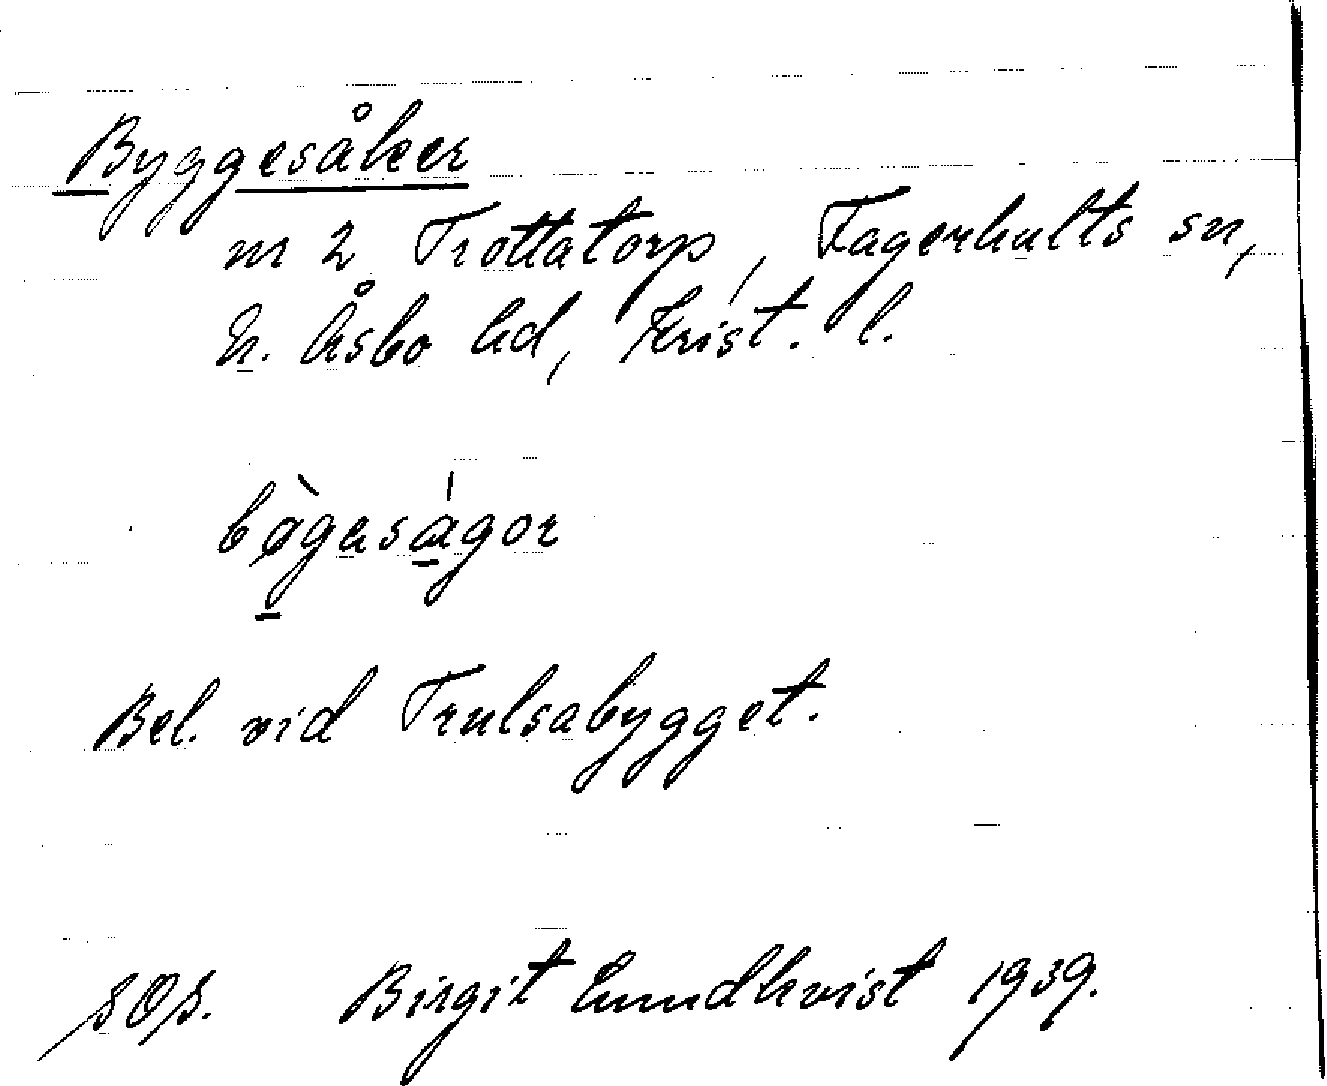 Byggesåker
m 2 Trottatorp, Fagerhults sn,
N. Åsbo hd, Krist. l.
Bel. vid Trulsabygget.
Birgit Lundkvist 1939.